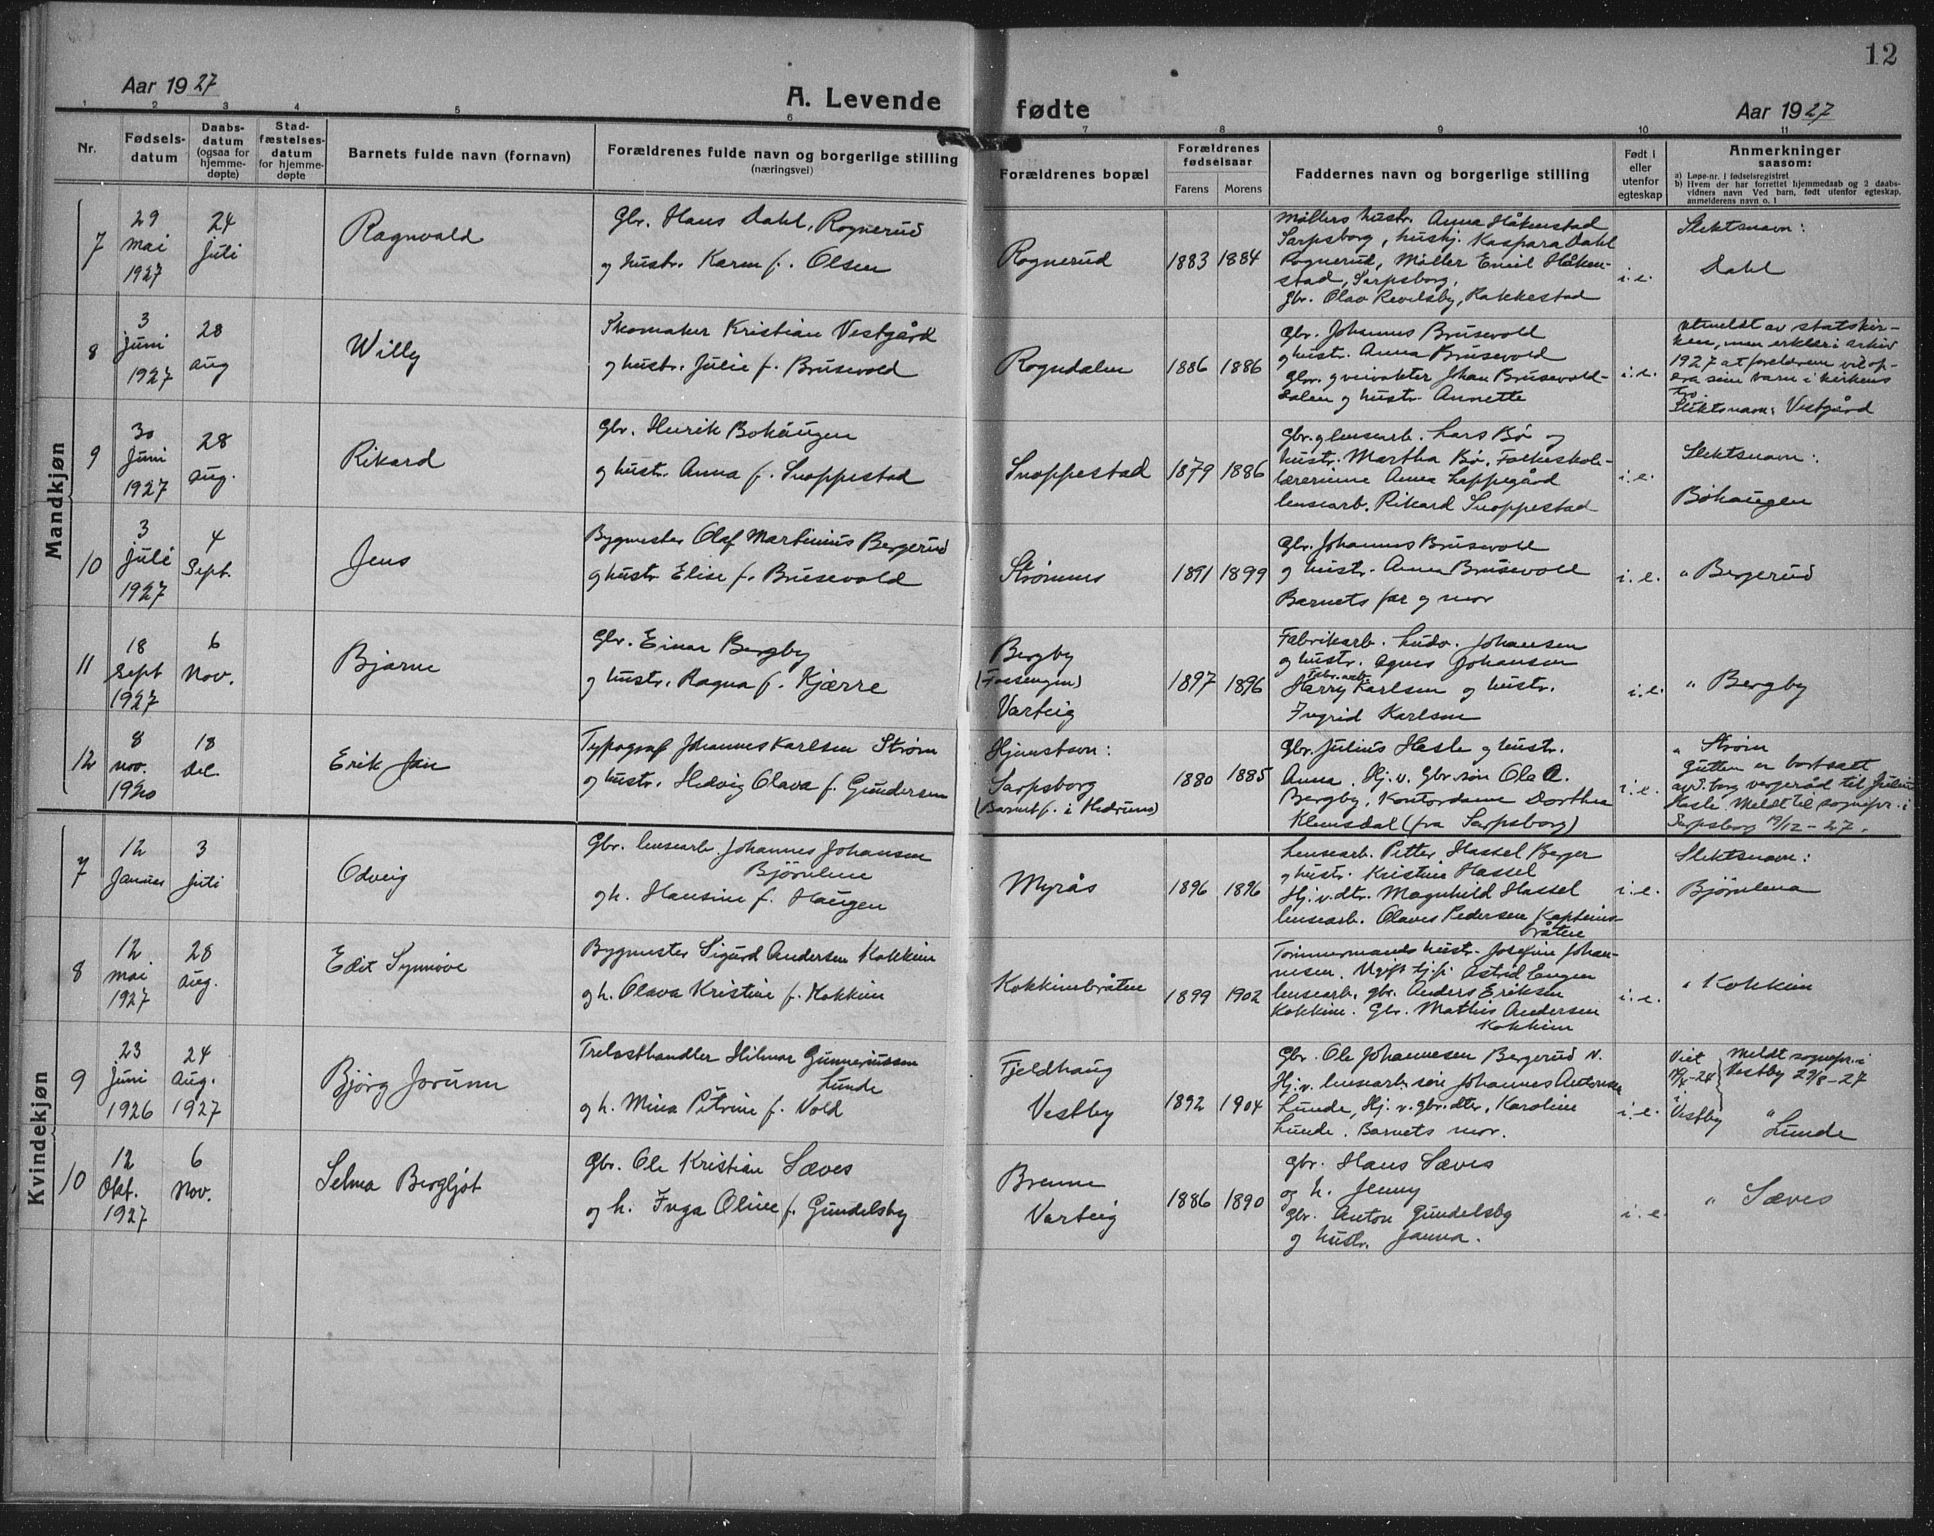 12
Aar 1927
A. Levende fødte
Aar 1927
1 2 3 4 5 6 7 8 9 10 11
Nr.
Fødsels-
datum
Daabs-
datum
(ogsaa for
hjemme-
døpte)
Stad-
fæstelses-
datum
for hjemme-
døpte
Barnets fulde navn (fornavn)
Forældrenes fulde navn og borgerlige stilling
(næringsvei)
Forældrenes bopæl
Forældrenes
fødselsaar
Farens Morens
Faddernes navn og borgerlige stilling
Født i
eller
utenfor
egteskap
Anmerkninger
saasom:
a) Løpe-nr. i fødselsregistret
b) Hvem der har forrettet hjemmedaab og 2 daabs-
vidners navn Ved barn, født utenfor egteskap,
anmelderens navn o. l
Mandkjøn
7
29
mai
1927
24
Juli
Ragnvald
Gbr. Hans Dahl, Rognerud
og hustr. Karen f. Olsen
Rognerud
1883 1884
Møllers hustr. Anna Håkenstad
Sarpsborg, hushj. Kaspara Dahl
Rognerud, Møller Emil Håken-
stad, Sarpsborg,
Gbr. Olav Revelsby, Rakkestad
i. e.
Slektsnavn:
Dahl
8
3
Juni
1927
28
aug
Willy
Skomaker Kristian Vestgård
og hustr. Julie f. Brusevold
Rogndalen
1886 1886
Gbr. Johannes Brusevold
og hustr. Anna Brusevold
Gbr. og veivokter Johan Brusevold-
dalen og hustr. Annette
i. e.
utmeldt av statskir-
ken, men erklær i arkiv
1927 at foreldrene vil op-
dra sine barn i kirkens
tro.
Slektsnavn: Vestgård
9
30
Juni
1927
28
aug.
Rikard
Gbr. Henrik Bøhaugen
og hustr. Anna f. Snoppestad
Snoppestad
1879 1886
Gbr. og lensearb. Lars Bø og
hustr. Martha Bø, Folkeskole-
lærerinne Anna Leppegård
lensearb. Rikard Snoppestad
i. e.
Slektsnavn:
Bøhaugen
10
3
Juli
1927
4
Sept.
Jens
Bygmester Olaf Martinius Bergerud
og hustr. Elise f. Brusevold
Strømnes
1891 1899
Gbr. Johannes Brusevold
og hustr. Anna Brusevold
Barnets far og mor
i. e.
" Bergerud
11
18
Sept
1927
6
Nov.
Bjarne
Gbr. Einar Bergby
og hustr. Ragna f. Kjærre
Bergby
(Fossengen)
Varteig
1897 1896
Fabrikarb. Ludv. Johansen
og hustr. Agnes Johansen
Fabr. arb.
Harry Karlsen og hustr.
Ingrid Karlsen
i. e.
" Bergby
12
8
nov.
1920
18
des.
Erik Jan
Typograf Johannes Karlsen Strøm
og hustr. Hedvig Olava f. Gundersen
Hjemstavn:
Sarpsborg
(Barnet f. i Hedrum)
1880 1885
Gbr. Julius Hasle og hustr.
Anna. Hj. v. Gbr. søn Ole A.
Bergby, Kontordame Dorthea
Klemsdal (fra Sarpsborg)
i. e.
" Strøm
Gutten er bortsatt
av S.borg vergeråd til Julius
Hasle Meldt til sognepr. i
Sarpsborg 19/12-27.
Kvindekjøn
7
12
Januar
3
Juli
Odveig
Gbr. lensearb. Johannes Johansen
Bjørnlena
og h. Hansine f. Haugen
Myrås
1896 1896
Lensearb. Petter Hassel Berger
og hustr. Kristine Hassel
Hj. v. dtr. Magnhild Hassel
lensearb. Olaves Pedersen Kapteins-
bråten
i. e.
Slektsnavn:
Bjørnlena
8
12
mai
1927
28
aug.
Edit Synnøve
Bygmester Sigurd Andersen Kokkim
og h. Olava Kristine f. Kokkim
Kokkimbråten
1899 1902
Tømmermands hustr. Josefine Johan-
nesen. Ugift tj.p. Astrid Engen
lensearb. gbr. Anders Eriksen
Kokkim. Gbr. Mathis Andersen
Kokkim
i. e.
" Kokkim
9
23
Juni
1926
24
Aug.
1927
Bjørg Jorunn
Trelasthandler Hilmar Gunneriussen
Lunde
og h. Mina Petrine f. Vold
Fjeldhaug
Vestby
1892 1904
Gbr. Ole Johannesen Bergerud N.
Hj. v. lensearb. søn Johannes Antonsen
Lunde, Hj. v. gbr. dtr. Karoline
Lunde. Barnets mor.
i. e.
Viet
i
Vestby
Meldt sognepr. i
Vestby 29/8-27
" Lunde
10
12
Okt.
1927
6
Nov.
Selma Bergljot
Gbr. Ole Kristian Sæves
og h. Inga Oline f. Gundelsby
Brenne
Varteig
1886 1890
Gbr. Hans Sæves
og h. Jenny
Gbr. Anton Gundelsby
og hustr. Janna.
i. e.
" Sæves